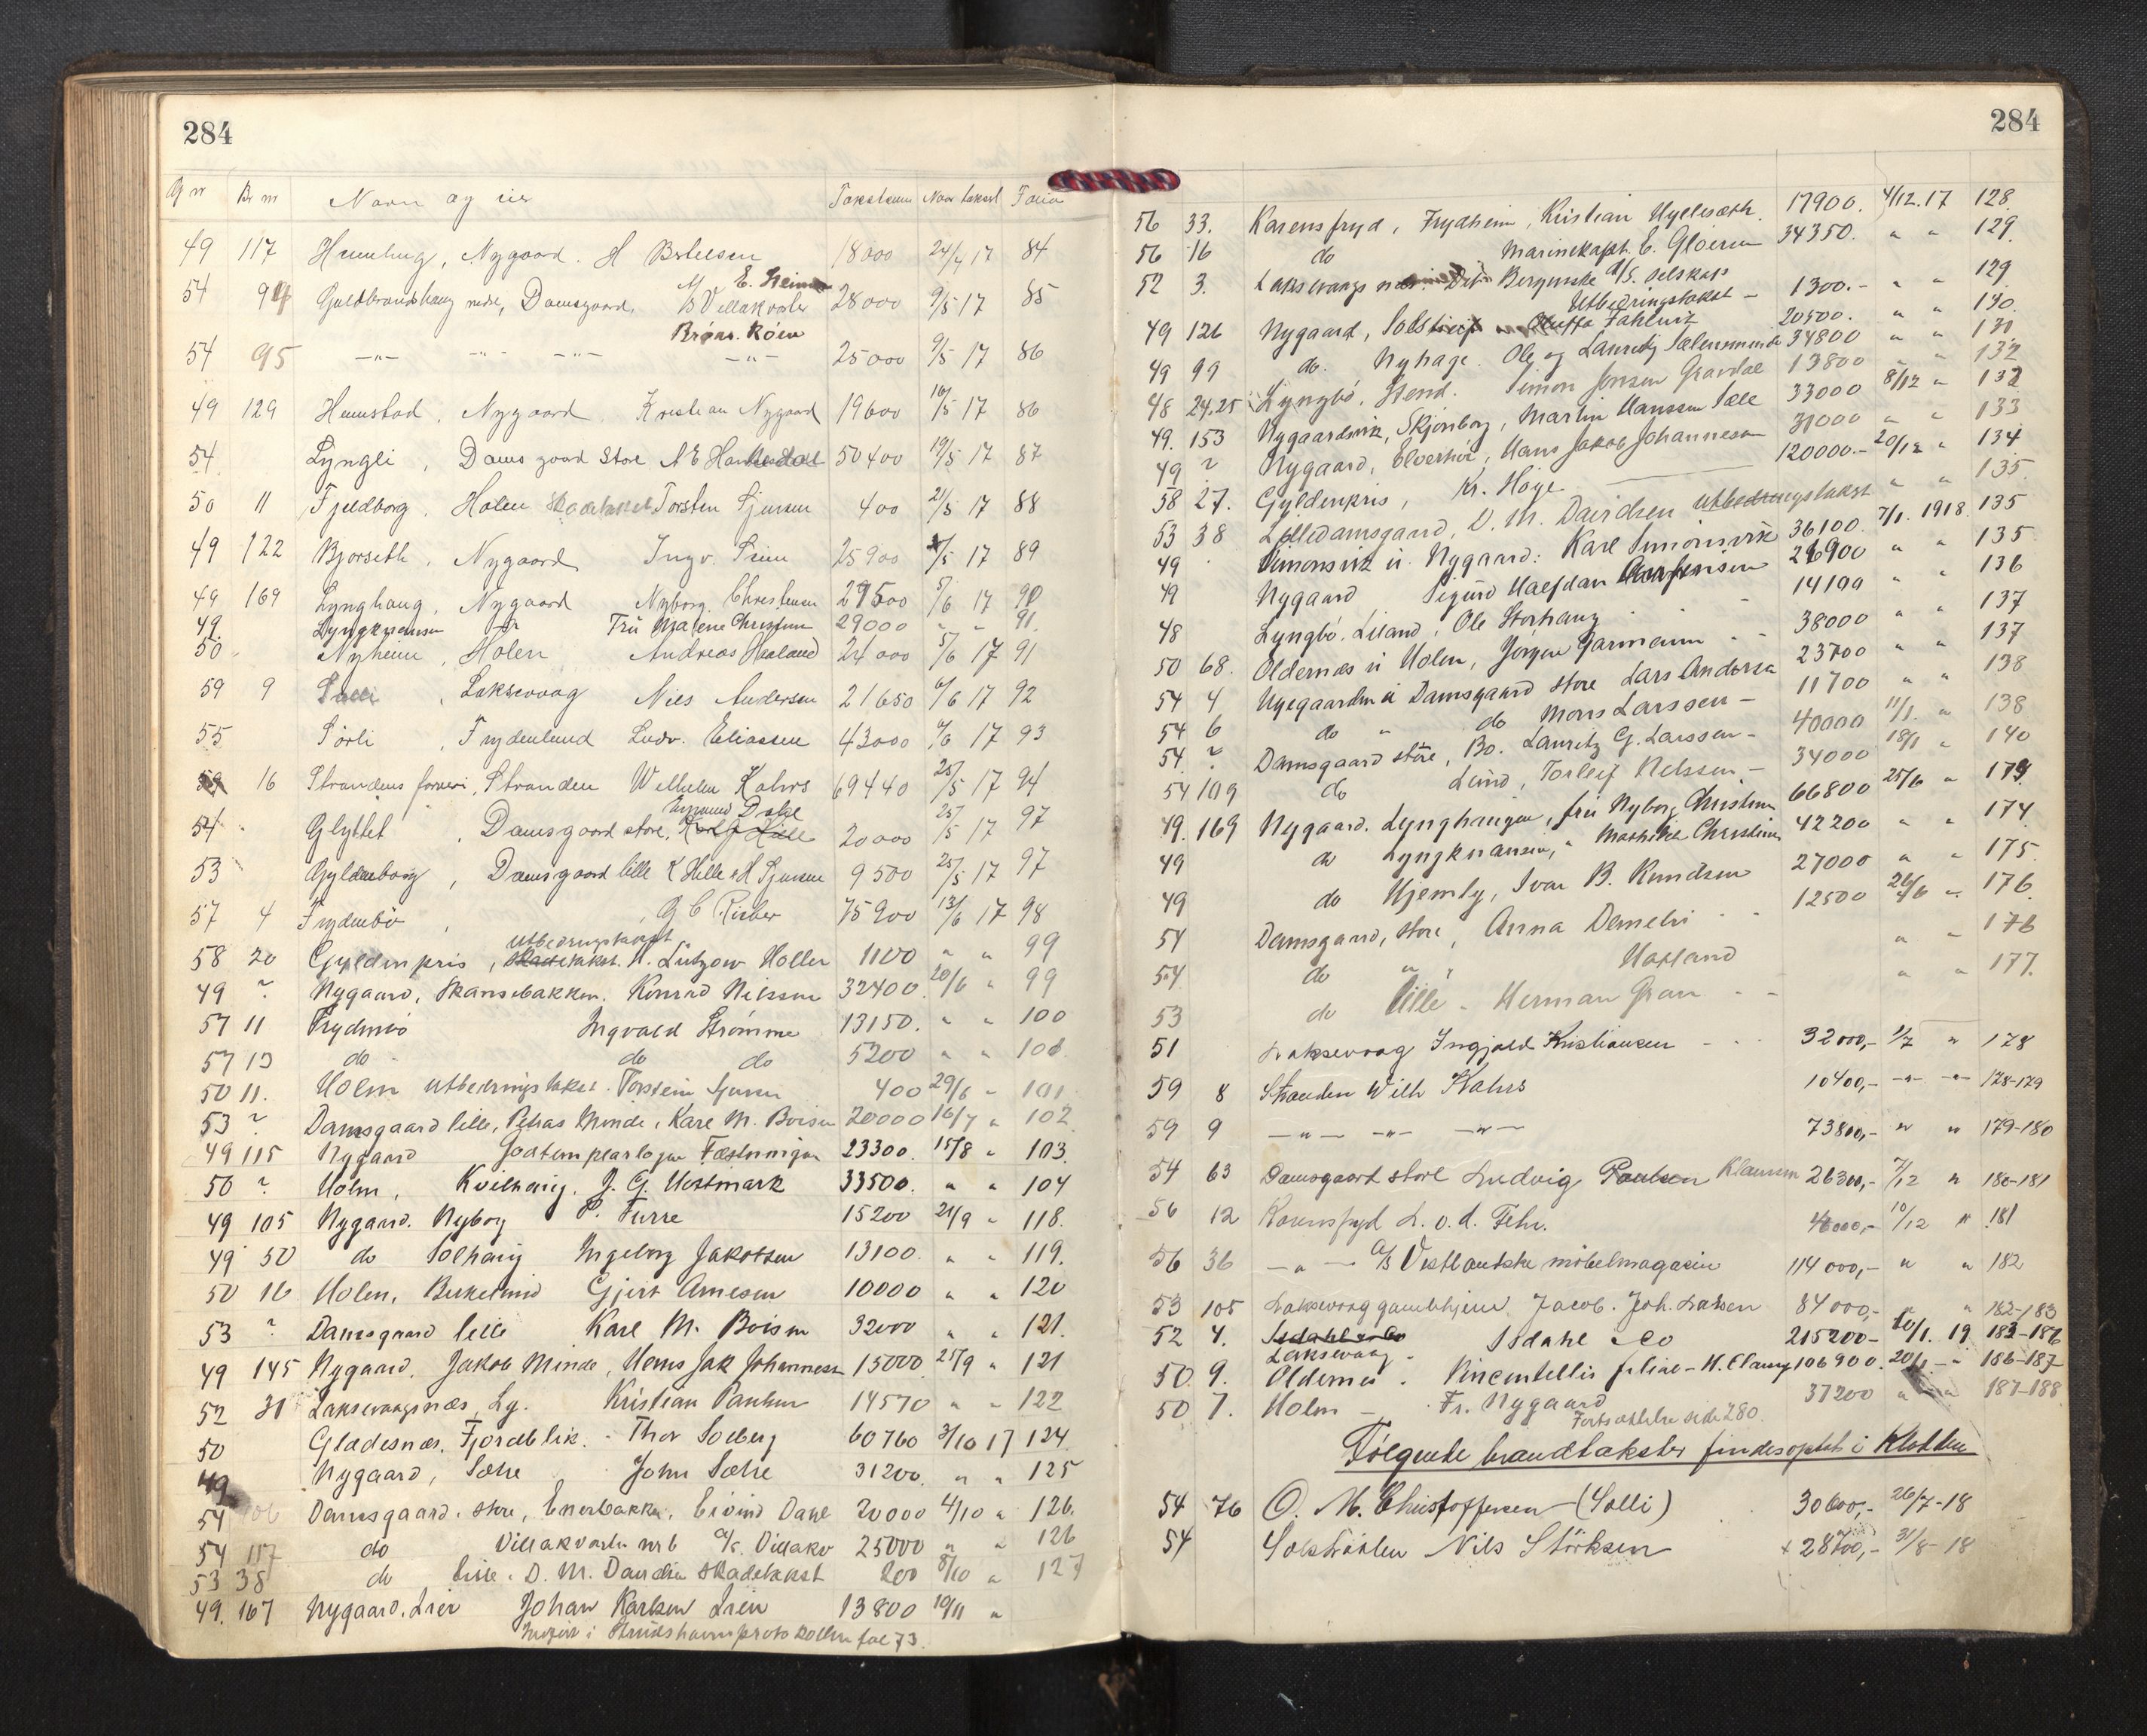 284
G nr Br nr Navn og eier Takstsum Naar takset Folio
49 117 Nygaard. H 18000 24/4 17 84
E. Heim
54 94 Guldbrandshaug nedre, Damsgaard, A/S Villakvarter 28000 9/5 17 85
Brødr. Röen
54 95 -"- -"- -"- -"- 25000 9/5 17 86
49 129 Heimstad, Nygaard, Kristian Nygaard 19600 16/5 17 86
54 Lyngli, Damsgaard Store A E 50400 19/5 17 87
50 11 Fjeldborg, Holen Skadetakst Torsten Sjursen 400 21/5 17 88
49 122 Bjorseth, Nygaard Ingv. 25900 /5 17 89
49 169 Lynghaug, Nygaard Nyborg Christensen 27500 5/6 17 90
49. Lyngknausen do Fru Malene Christensen 29000 " " 91.
50 Nyheim, Holen Andreas Haaland 24000 5/6 17 91
59 9 , Laksevaag Nils Andersen 21650 6/6 17 92
55 Sörli, Frydenlund Ludv. Eliassen 43000 /6 17 93
16 Strandens farveri, Stranden Wilhelm Kahrs 69440 25/5 17 94
54 Glyttet, Damsgaard store, 20000 25/5 17 97
53 Gyldenborg, Damsgaard lille K Helle & H Sjursen 9500 25/5 17 97
57 4 Frydenbö, G C Rieber 75900 13/6 17 98
Utbedringstakst
58 20 Gyldenpris, Skadetakst. H. Lützow Holler 1100 " " 99
49 ? Nygaard, Skansebakken. Konrad Nilssen 32400. 20/6 " 99
57 11 Frydenbö Ingvald Strömme 13150. " " 100
57 13 do do do 5200 " " 100
50 11. Holen Utbedringstakst. Torstein Sjursen 400 29/6 " 101
53 ? Damsgaard lille, Petras Minde, Karl M. Boisen 20000 16/7 " 102
49 115 Nygaard Godtemplarlogen Fæstningen 23300. 15/8 " 103.
50 ? Holen, Kvilhaug, J. G. Vestmark 33500. " " 104
49 105 Nygaard. Nyborg P. Furre 15200 21/9 " 118.
49 50 do Solhaug Ingeborg Jakobsen 13100. " " 119.
50 16 Holen, Birkelund Gjert Arnesen 10000 " " 120
53 ? Damsgaard lille Karl M. Boisen 32000 " " 121.
49 145 Nygaard. Jakob Minde, Hans Jak Johannessen 15000. 25/9 " 121
52 31 Laksevaagsnæs, Ly. Kristian Paulsen 14570 " " 122
50 Gladesnæs, Fjordblik. Thor Solberg 60760 3/10 17 124
49 Nygaard, Sætre John Sætre 31200. " " 125
54 106 Damsgaard. store, Enerbakken, Eivind Dahl 20000 4/10 " 126.
54 117 do Villakvarter nr 6 A/S. Villakv 25000 " " 126
53 38 do Lille. D. M. Davidsen Skadetakst 200 8/10 " 127
49. 167 Nygaard. Lien Johan Karlsen Lien 13800 10/11 "
Indført i Strudshavnprotokollen fol 73.
284
56 33. Karensfryd, Frydheim, Kristian Hyllesæth. 17900. 4/12. 17 128.
56 16 do Marinekapt. E. Gloersen 34350. " " 129.
52 3. Laksevaags Det Bergenske D/S. selskab
Utbedringstakst - 1300.- " " 129
49 126 Nygaard, Solstrif Olutta Fahlvik 20500. " " 130.
49 99 do. Nyhage. Ole og Lauritz Sælensminde 34800 " " 130
48 24.25 Lyngbö, Stend. Simon Jonsen Gravdal 13800 " " 132
49. 153 Nygaardsvik, Skjönborg, Martin Hanssen Sæle 33000 8/12 " 132
49 ? Nygaard, Elverhöi, Hans Jakob Johannesen 31000 " " 133
58 27. Gyldenpris, Kr. Höye 120000.- 20/12 " 134
53 38 Lilledamsgaard, D. M. Davidsen Utbedringstakst " " 135.
49 Simonsvik u. Nygaard: Karl Simonsvik 36100. 7/1. 1918. 135
49 Nygaard Sigurd Halfdan 26900 " " 135
48 Lyngbö. Liland, Ole Storhaug 14100 " " 136
50 68. Oldernæs u Holen, Jörgen Garmann 38000 " " 137
54 4 Nyegaarden u Damsgaard store Lars Andersen 23700 " " 137
54 6 do " do Mons Larssen - 11700 " " 138
54 ? Damsgaard störe, Bo. Lauritz G. Larssen - 40000 11/1. " 138
54 109 do Lund, Torleif Nilssen - 34000 18/1 " 140
49. 169 Nygaard. Lynghaugen, fru Nyborg Christensen 66800 25/6 " 174
49 do Lyngknausen, " Mathilde Christensen 42200 " " 174
49 do Hjemly, Ivar B. Knudsen 27000 " " 175.
54 Damsgaard, store, Anna 12500 26/6 " 176.
54 do " " Hatland " " 176
53 do lille - Herman Gran - - " " 177.
51 Laksevaag Ingjald Kristiansen - - - 32000,- 1/7 " 178
59 8 Stranden Wilh Kahrs 10400,- -"- -"- 178-179
59 9 -"- -"- -"- 73800,- " " 179-180
54 63 Damsgaard store Ludvig Paulsen Klausen 26300,- 7/12 " 180-181
56 12 Karensfryd L. v. d. Fehr. 4000,- 10/12 " 181
56 36 -"- A/S Vestlandske möbelmagasin 114000,- " " 182
53 105 Laksevaag gamlehjem Jacob. Joh. Laksen 84000,- " " 182-183
52 4. Isdahl & Co Isdahl & Co 215200- 10/1. 19. 183-186
Laksevaag
50. 9. Oldernes. Vincentellis filial - H. Clausen 106900. 20/1 - " 186-187
50 7. Holen - Fr. Nygaard 37200 " " 187-188
Fortsættelse side 280.
Følgende brandtakster findes optat i Kladden
54 76 O. M. Christoffersen (Solli) 30600,- 26/7-18
54 Solstrålen Nils Störksen + 28700,- 31/8-18